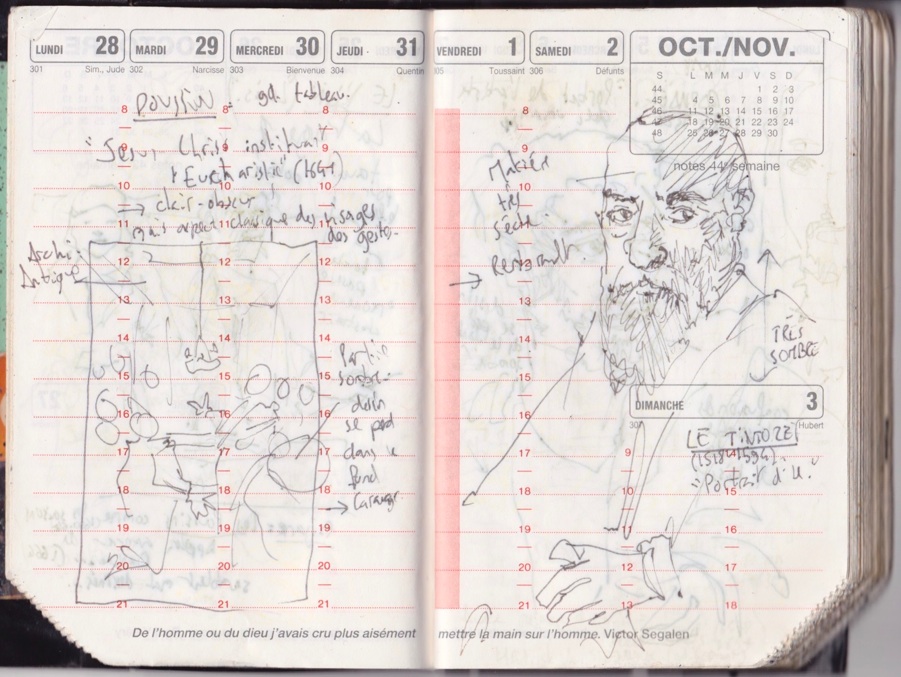 LUNDI 28
301 Sim., Jude
MARDI 29
302 Narcisse
MERCREDI 30
303 Bienvenue
JEUDI 31
304 Quentin
POUSSIN gd. tableau.
"Jesus Christ instituant
l'Eucharistie" (1641)
→ clair-obscur
mais aspect classique des visages
des gestes.
Archi.
Antique
Partie
sombre
se perd
dans le
fond
→
8
9
10
11
12
13
14
15
16
17
18
19
20
21
De l'homme ou du dieu j'avais cru plus aisément
VENDREDI 1
305 Toussaint
SAMEDI 2
306 Défunts
OCT./NOV.
S L M M J V S D
44 1 2 3
45 4 5 6 7 8 9 10
46 11 12 13 14 15 16 17
47 18 19 20 21 22 23 24
48 25 26 27 28 29 30
notes 44e semaine
Matière
très
sèche.
→ Rembrandt.
TRÈS
SOMBRE
DIMANCHE 3
307 Hubert
LE TINTORET
(1518-1594).
"Portrait d'H."
8
9
10
11
12
13
14
15
16
17
18
19
20
21
9
10
11
12
13
14
15
16
17
18
mettre la main sur l'homme. Victor Segalen